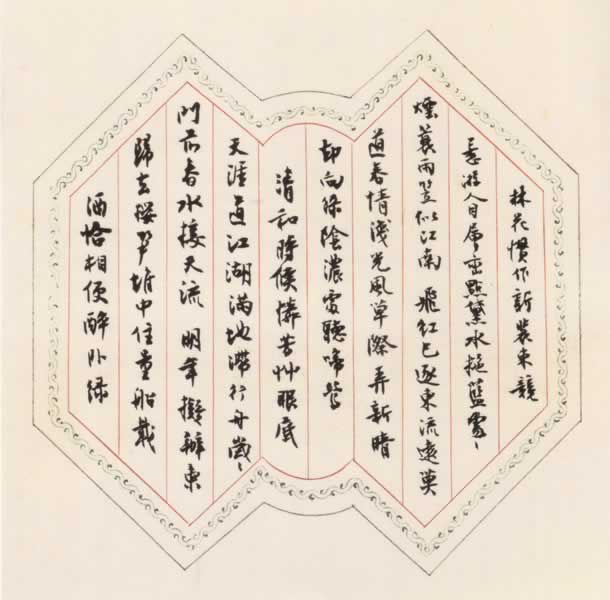 林花慣作新裝束競
惹游人目層峦點黛水拖藍處々
煙蓑雨笠似江南 飛紅已逐東流遠莫
道春情淺光風草際弄新晴
却向綠陰濃處聽啼鶯
清和時候憐芳艸眼底
天涯道江湖滿地滯行舟歲々
門前春水接天流 明年擬辦東
歸去櫻筍堆中住畫船載
酒恰相便醉卧綠